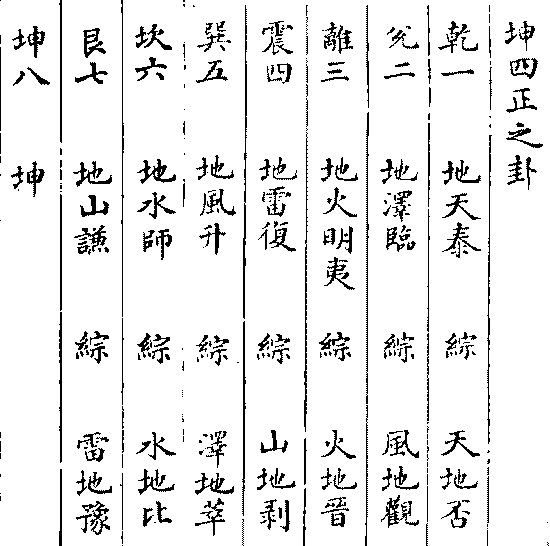 坤四正之卦
乾一 地天泰 綜 天地否
兌二 地澤臨 綜 風地觀
離三 地火明夷 綜 火地晉
震四 地雷復 綜 山地剥
巽五 地風升 綜 澤地萃
坎六 地水師 綜 水地比
艮七 地山謙 綜 雷地豫
坤八 坤